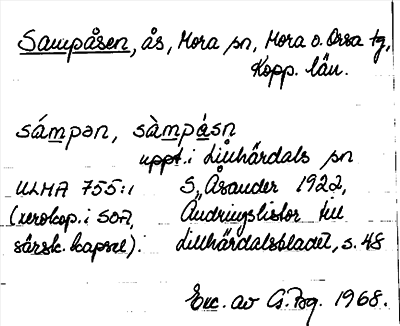 Sampåsen, ås, Mora sn, Mora o. Orsa tg,
Kopp. län.
sámpən, sàmpásn
uppt. i Lillhärdals sn
ULMA 755:1 S. Åsander 1922,
(xerokop. i SOA, Ändringslistor till
särsk. kapsel). Lillhärdalsbladet, s. 48
Exc. av G. Bg. 1968.